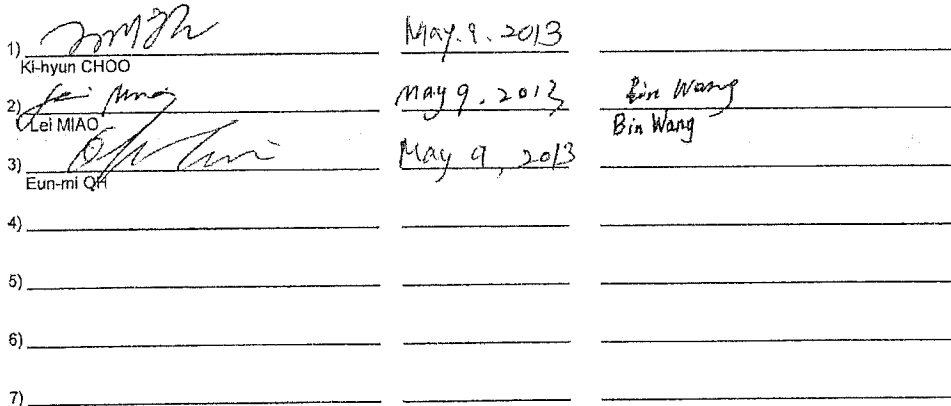 1) May. 9. 2013
Ki-hyun CHOO
2) May 9. 2013 Bin Wang
Lei MIAO Bin Wang
3) May 9, 2013
Eun-mi OH
4)
5)
6)
7)